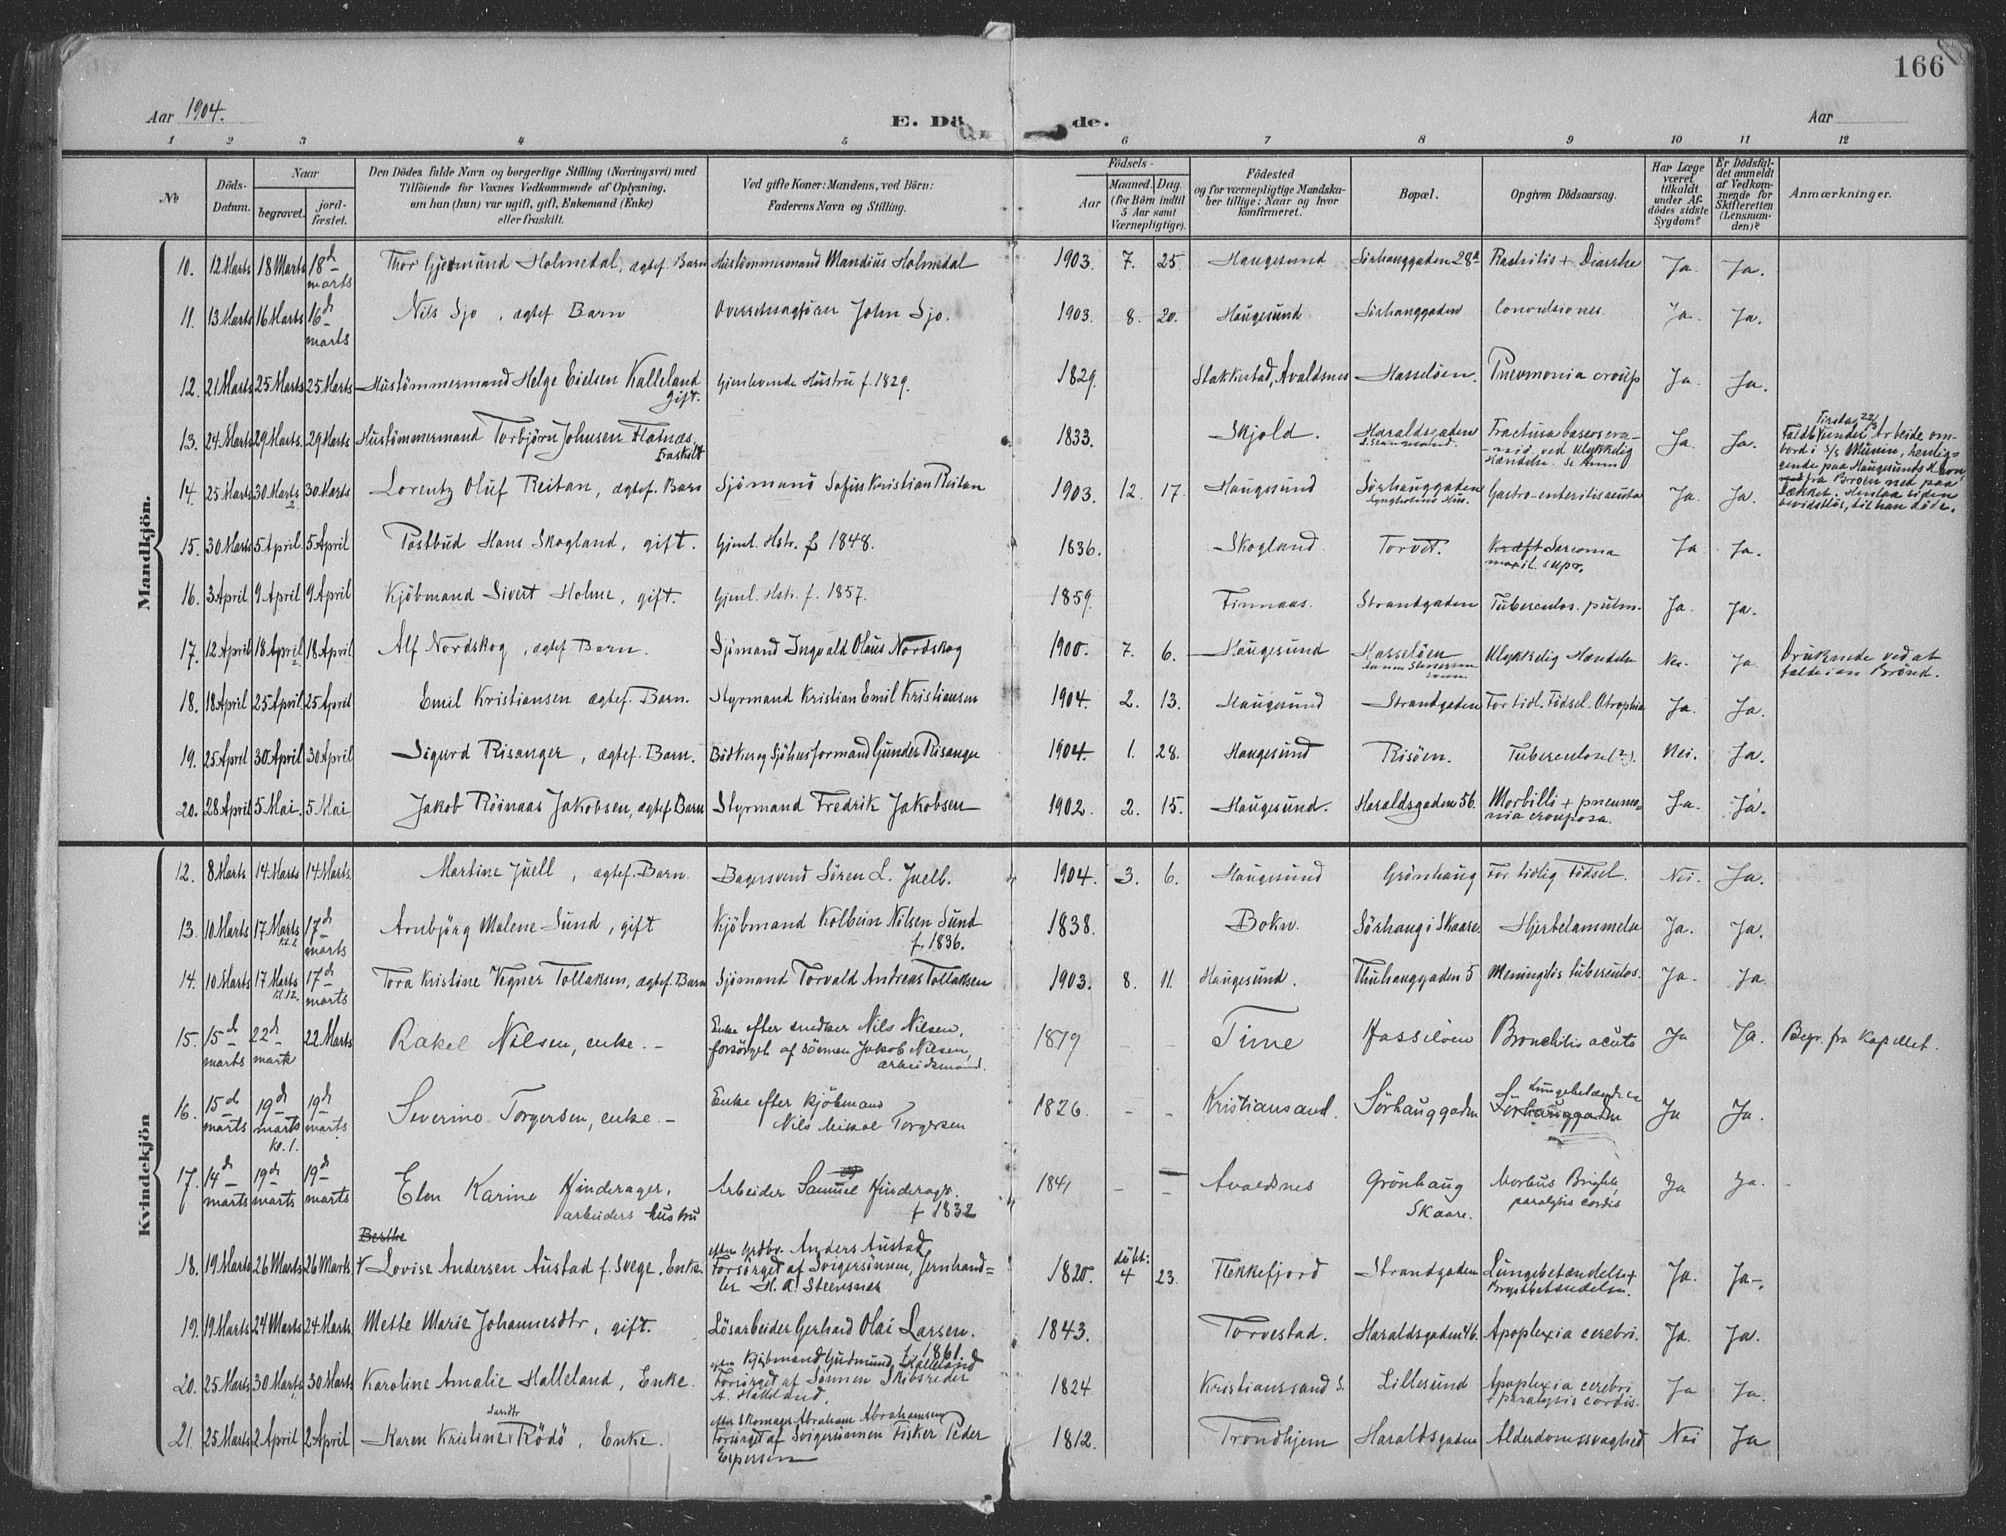 166
Aar 1904.
E. Dö de.
Aar
1 2 3 4 5 6 7 8 9 10 11 12
No
Döds-Datum.
Naar
begravet.
jord-fæstet.
Den Dödes fulde Navn og borgerlige Stilling (Næringsvei) med
Tilföiende for Voxnes Vedkommende af Oplysning,
om han (hun) var ugift, gift, Enkemand (Enke)
eller fraskilt.
Ved gifte Koner: Mandens, ved Börn:
Faderens Navn og Stilling.
Födsels-
Aar
Maaned. Dag.
(for Börn indtil
5 Aar samt
Værnepligtige).
Födested
og for værnepligtige Mandska-
ber tillige: Naar og hvor
konfirmeret.
Bopæl.
Opgiven Dödsaarsag.
Har Læge
været
tilkaldt
under Af-
dödes sidste
Sygdom?
Er Dödsfal-
det anmeldt
af Vedkom-
mende for
Skifteretten
(Lensman-
den)?
Anmærkninger.
Mandkjön.
10. 12 Marts 18 Marts 18d marts Thor Gjermund Holmedal, ægtef. Barn Hustömmermand Mandius Holmedal 1903. 7. 25. Haugesund Sörhauggaden 28a Rachitis + Diarrhe Ja. Ja.
11. 13 Marts 16 Marts 16d marts Nils Sjo, ægtef Barn Oversetsagförer John Sjo. 1903. 8. 20. Haugesund Sörhauggaden Convulsiones. Ja. Ja.
12. 21 Marts 25 Marts 25 Marts Hustömmermand Helge Eielsen Kalleland gift. Gjenlevende Hustru f. 1829. 1829. Stakkestad, Avaldsnes Hasselöen. Pneumonia croup Ja. Ja.
13. 24 Marts 29 Marts. 29 Marts Hustömmermand Torbjörn Johnsen Flatnæs, Fraskilt 1833. Skjold. Haraldsgaden Fractura baseos cra-
nii ved Ulykkelig
Hændelse. Se Anm Ja. Ja. Tirsdag 22/3
Faldt under Arbeide om-
bord i S/S Munin, henlig-
gende paa Haugesunds Havn,
fra Broen ned paa
Dækket. Henlaa siden
bevidstlös, til han döde.
14. 25 Marts 30 Marts 30 Marts Lorentz Oluf Reitan, ægtef. Barn Sjömand Sofus Kristian Reitan 1903. 12. 17. Haugesund Sörhauggaden Gastro-enteritis acuta Ja. Ja.
15. 30 Marts 5 April 5 April Postbud Hans Skogland, gift. Gjenl. Hstr. f. 1848. 1836. Skogland Torvet. Kræft Sarcoma
maxil. supr. Ja Ja.
16. 3 April 9 April 9 April Kjöbmand Sivert Holme, gift. Gjenl. Hstr. f. 1857. 1859. Finnaas. Strandgaden Tuberculos. pulm. Ja. Ja.
17. 12 April 18 April 18 April Alf Nordskog, ægtef. Barn. Sjömand Ingvald Olaus Nordskog 1900. 7. 6. Haugesund Hasselöen Ulykkelig Hændelse Nei. Ja Druknede ved at
falde i en Brönd.
18. 18 April 25 April 25 April Emil Kristiansen ægtef. Barn. Styrmand Kristian Emil Kristiansen 1904. 2. 13. Haugesund Strandgaden For tidl. Födsel. Atrophia Ja. Ja.
19. 25 April 30 April 30 April Sigurd Risanger, ægtef. Barn. Bödker og Sjöhusformand Gunder Risanger 1904. 1. 28. Haugesund Risöen. Tuberculose (?). Nei. Ja.
20. 28 April 5 Mai. 5 Mai Jakob Röinaas Jakobsen, ægtef. Barn Styrmand Fredrik Jakobsen 1902. 2. 15. Haugesund. Haraldsgaden 56. Morbilli + pneumo-
nia crouposa. Ja. Ja.
Kvindekjön
12. 8 Marts 14 Marts 14 Marts. Martine Juell, ægtef. Barn. Bagersvend Sören L. Juell. 1904. 3. 6. Haugesund Grönhaug For tidlig Födsel. Nei. Ja.
13. 10 Marts 17 Marts 17d marts Arnbjörg Malene Sund, gift Kjöbmand Kolbein Nilsen Sund
f. 1836. 1838. Bokn. Sörhaug i Skaare. Hjertelammelse Ja. Ja.
14. 10 Marts 17 Marts kl. 12. 17d marts Tora Kristine Vegner Tollaksen, ægtef. Barn Sjömand Torvald Andreas Tollaksen 1903. 8. 11. Haugesund. Thuhauggaden 5 Meningitis tuberculos. Ja. Ja.
15. 15d marts 22d marts 22 Marts Rakel Nilsen, enke. – Enke efter snedker Nils Nilsen,
forsörget af sönnen Jakob Nilsen,
arbeidsmand. 1819 – – Time Hasselöen Bronchitis acuta Ja Ja. Begr. fra Kapellet.
16. 15d marts 19d marts kl. 1. 19d marts Severine Torgersen, enke. – Enke efter Kjöbmand
Nils Mikal Torgersen 1826. – – Kristiansand. Sörhauggaden Lungebetændelse
Sörhauggaden Ja Ja.
17. 14d marts 19d marts 19d marts Elen Karine Hinderager,
arbeiders hustru Arbeider Samuel Hinderager.
f 1832 1841 – – Avaldsnes Grönhaug
Skaare. Morbus Brightii,
paralysis cordis Ja Ja.
Berthe
18. 19 Marts 26 Marts 26 Marts. Lovise Andersen Austad f. Svege. Enke. efter Grdbr. Anders Austad
Forsörget af Svigersönnen, Jernhand-
ler H. A. Steensnæs 1820. döbt: 4 23. Flekkefjord Strandgaden Lungebetændelse +
Brystbetændelse. Ja. Ja.
19. 19 Marts 24 Marts 24 Marts. Mette Marie Johannesdtr, gift. Lösarbeider Gerhard Olai Larsen.
f. 1861. 1843. Torvestad. Haraldsgaden 46. Apoplexia cerebri. Ja. Ja.
20. 25 Marts 30 Marts 30 Marts Karoline Amalie Halleland, Enke. efter Kjöbmand Gudmund Halleland
Forsörget af Sönnen Skibsreder
A. Halleland. 1824 Kristianssand S. Lillesund Apoplexia cerebri
+ paralysis cordis. Ja Ja.
21. 25 Marts 2 April 2 April Karen Kristine Rödö, Enke. efter Skomager Abraham Abrahamsen
Forsörget af Svigersönnen Fisker Peder
Espersen 1812. Trondhjem Haraldsgaden Alderdomssvaghed Nei Ja